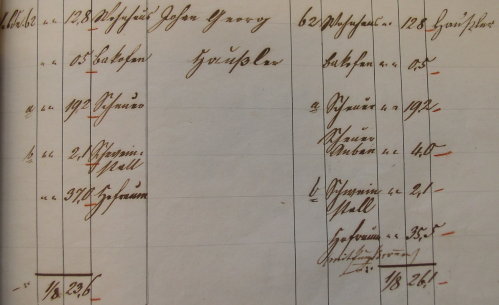 62 " " 12,8 Wohnhaus Johann Georg 62 Wohnhaus " " 12,8 Häußler
" " 0,5 Bakofen Häußler Bakofen " " 0,5
a " " 19,2 Scheuer a Scheuer " " 19,2
Scheuer
b " " 2,1 Schwein- Anbau " " 4,0
stall b Schwein " " 2,1
" " 37,0 Hofraum stall
Hofraum " " 35,5
1/8 23,6 1/8 26,1